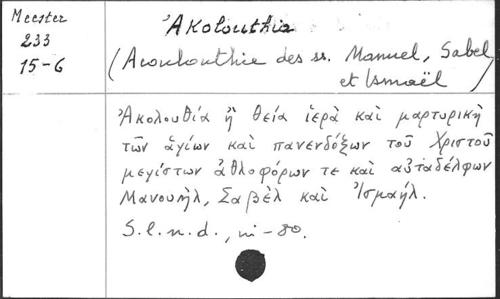 Meester
233
15-6
Ἀkolouthia
(Acoulouthie des ss. Manuel, Sabel
et Ismaël
Ἀκολουθία ἢ θεία ἱερὰ καὶ μαρτυρικὴ
τῶν ἁγίων καὶ πανενδόξων τοῦ Χριστοῦ
μεγίστων ἀθλοφόρων τε καὶ αὐταδέλφων
Μανουὴλ, Σαβὲλ καὶ Ἰσμαήλ.
S.l.n.d., in-80.